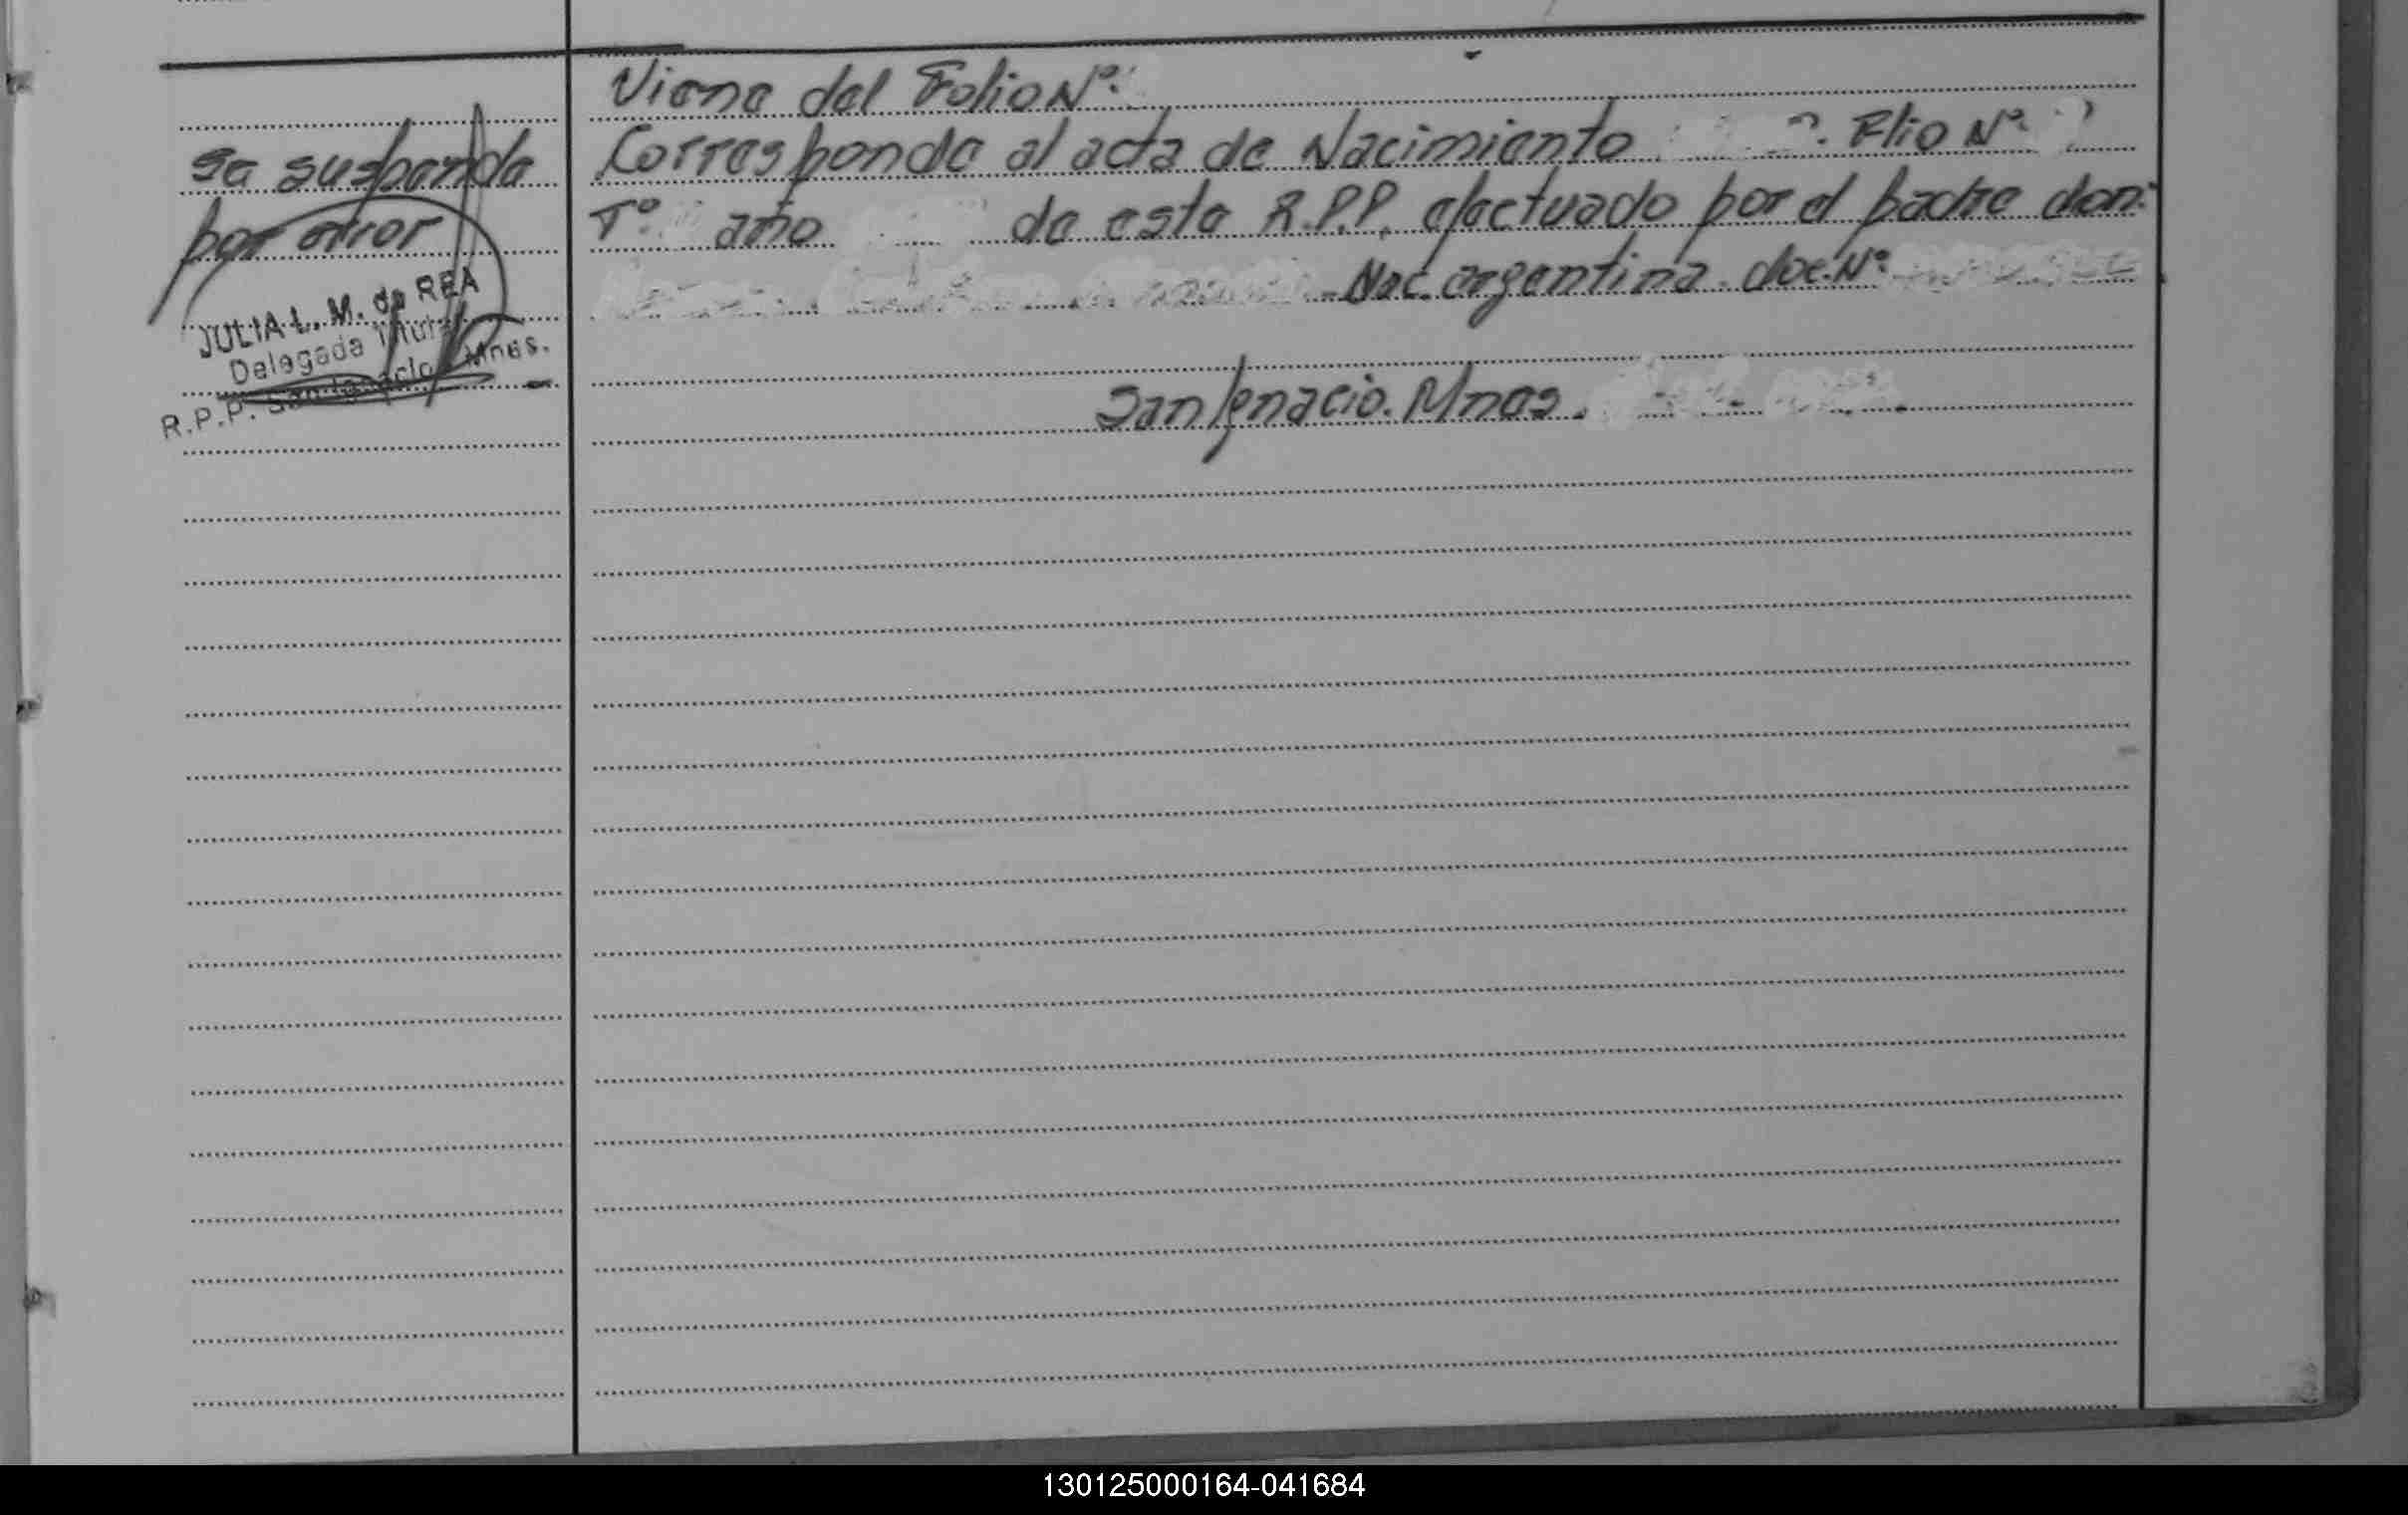 Viene del Folio Nº:
Corresponde al acta de Nacimiento Flio Nº
Tº año de este R.P.P. efectuado por el padre don:
Nac. argentina. doc. Nº
San Ignacio. Mnes.
Se suspende
por error
JULIA L. M. de REA
Delegada Titular
R.P.P. San Ignacio Mnes.
130125000164-041684